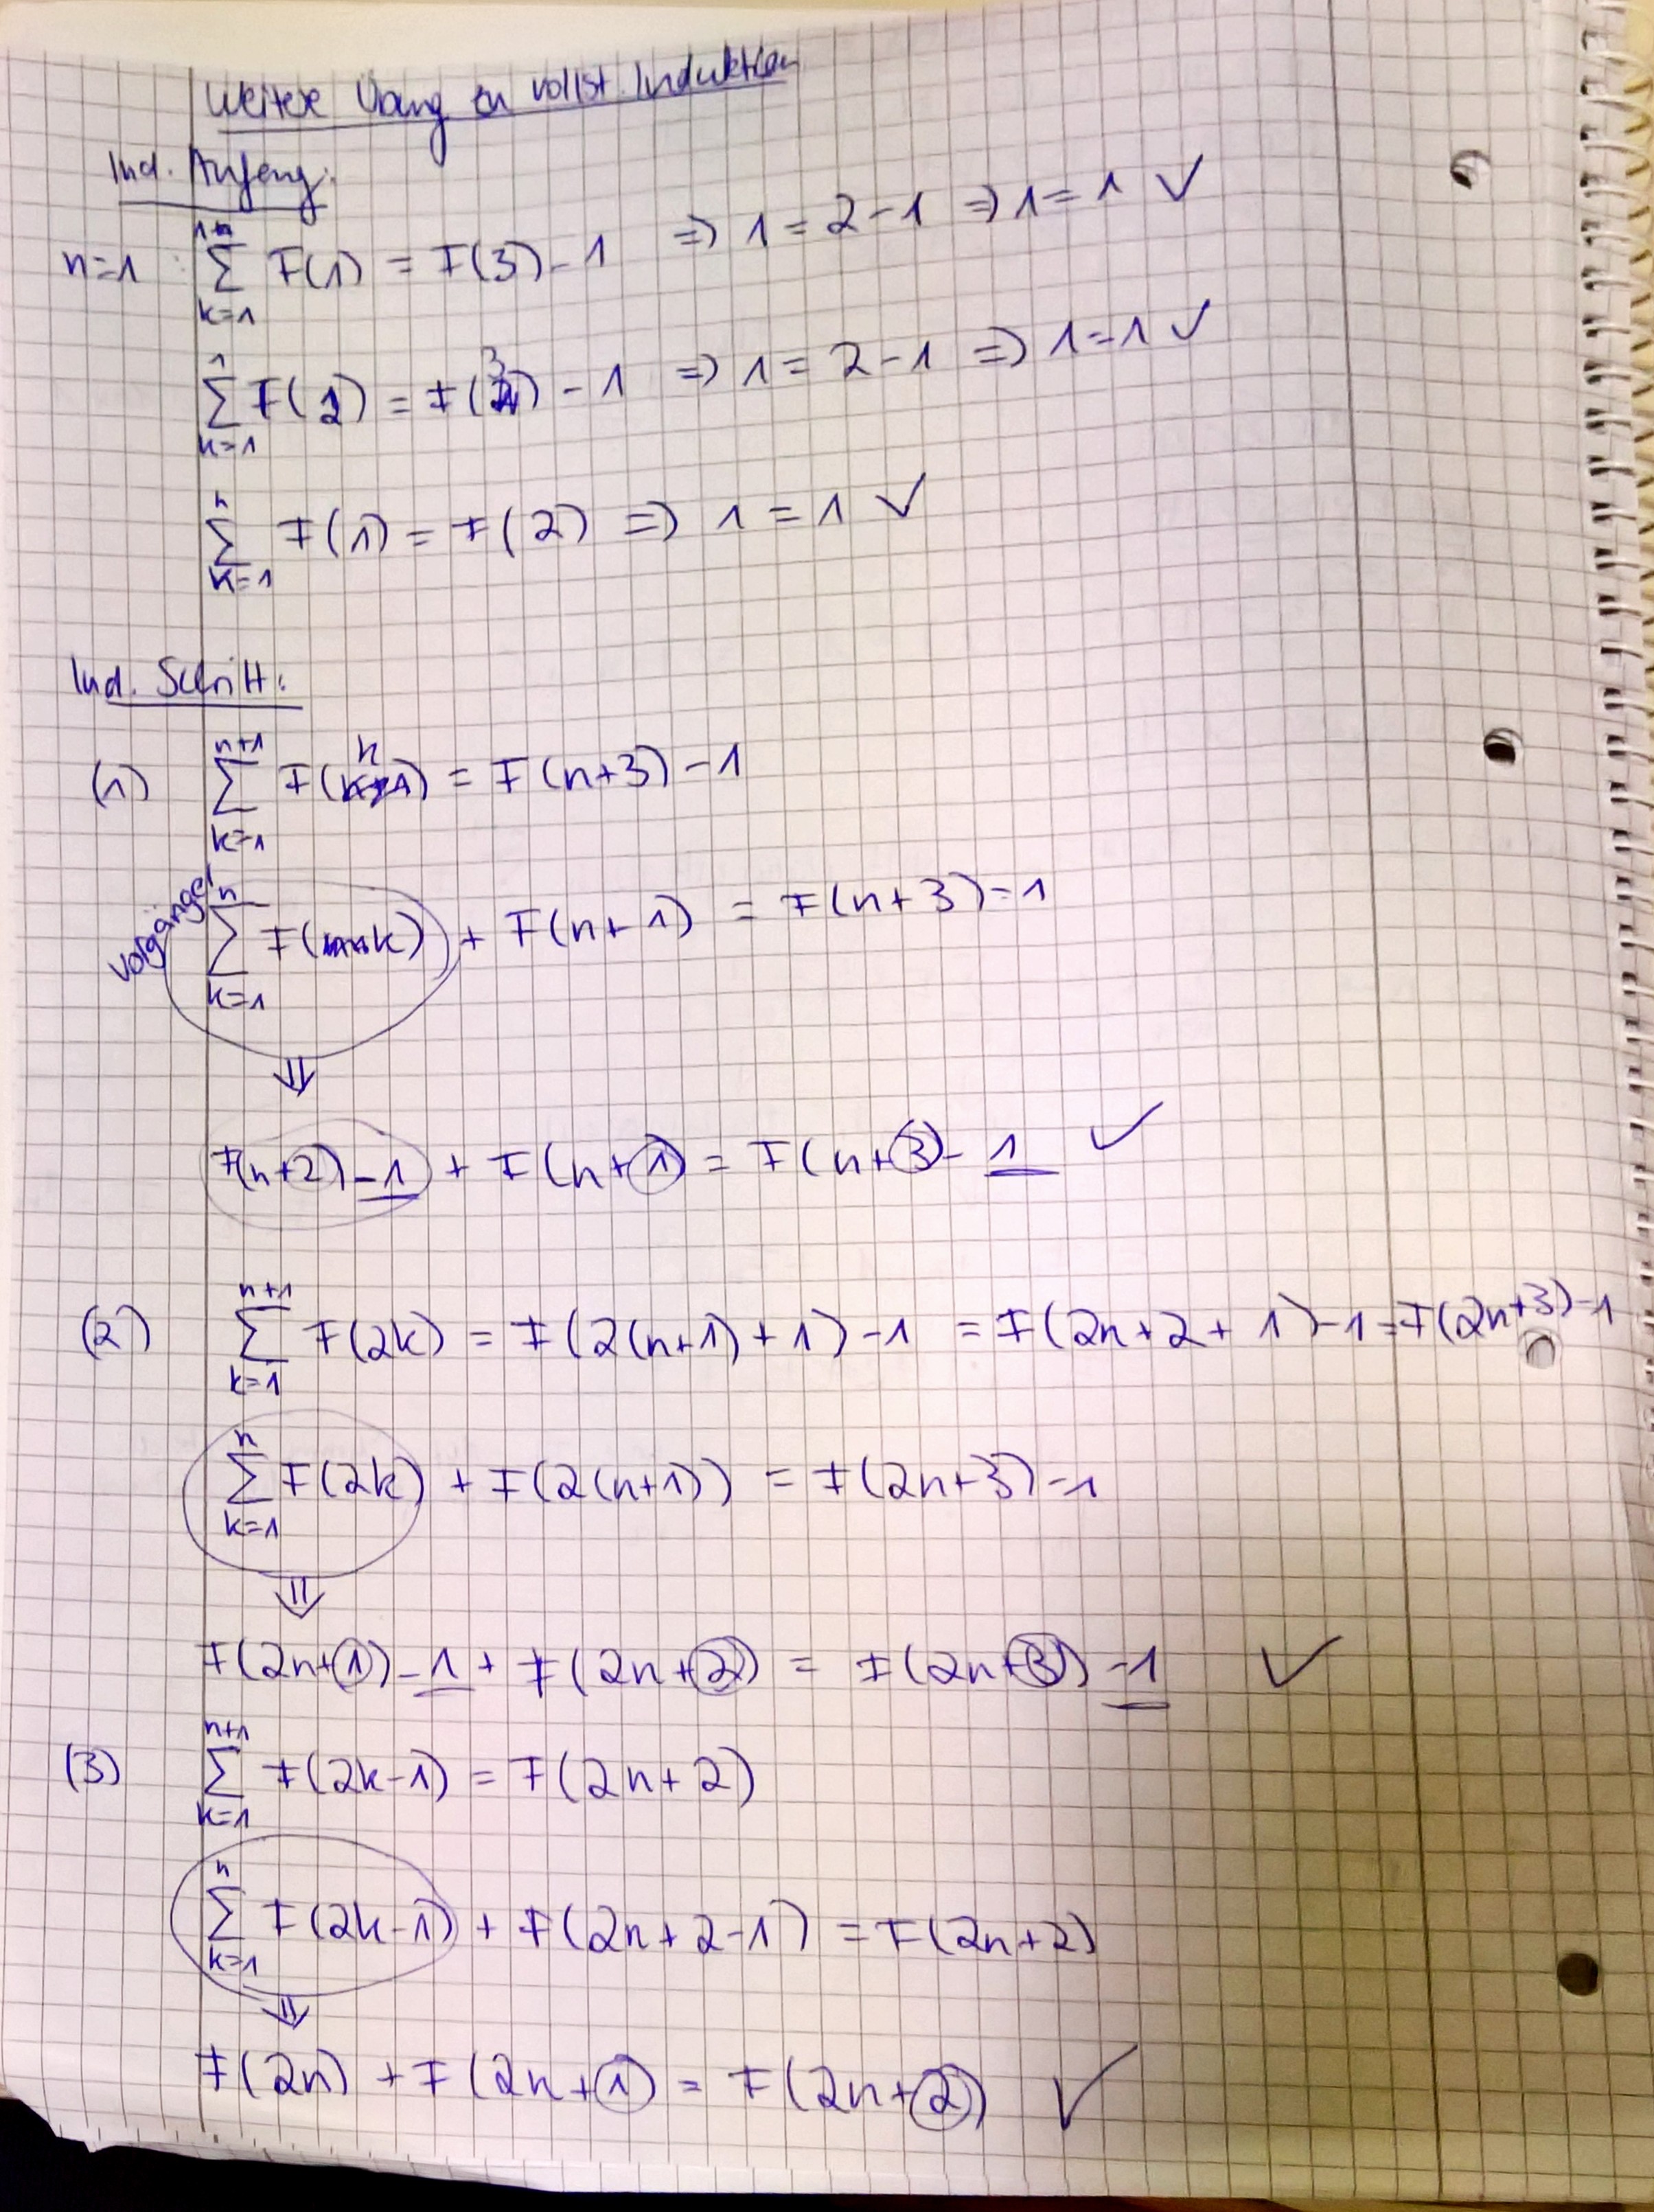 Weitere Übung zu vollst. Induktion
Ind. Anfang:
n=1 : ∑_{k=1}^{1} F(1) = F(3) - 1 => 1 = 2 - 1 => 1 = 1 ✓
∑_{k=1}^{1} F(2) = F(3) - 1 => 1 = 2 - 1 => 1 = 1 ✓
∑_{k=1}^{n} F(1) = F(2) => 1 = 1 ✓
Ind. Schritt:
(1) ∑_{k=1}^{n+1} F(k) = F(n+3) - 1
Vorgänger ∑_{k=1}^{n} F(k) + F(n+1) = F(n+3) - 1
⇓
F(n+2) - 1 + F(n+1) = F(n+3) - 1 ✓
(2) ∑_{k=1}^{n+1} F(2k) = F(2(n+1)+1) - 1 = F(2n+2+1) - 1 = F(2n+3) - 1
∑_{k=1}^{n} F(2k) + F(2(n+1)) = F(2n+3) - 1
⇓
F(2n+1) - 1 + F(2n+2) = F(2n+3) - 1 ✓
(3) ∑_{k=1}^{n+1} F(2k-1) = F(2n+2)
∑_{k=1}^{n} F(2k-1) + F(2n+2-1) = F(2n+2)
⇓
F(2n) + F(2n+1) = F(2n+2) ✓